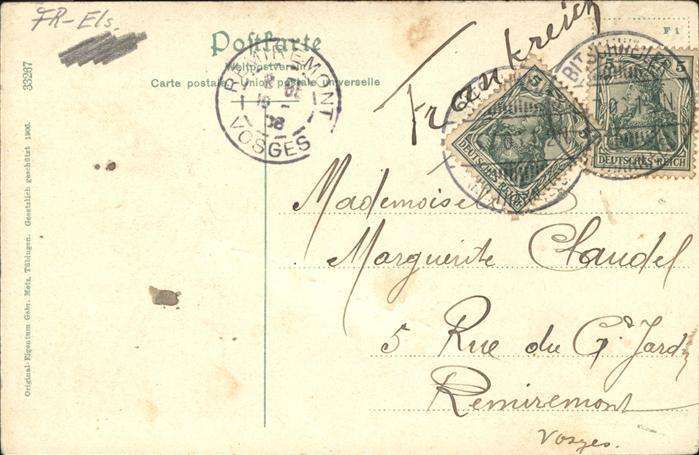 FR-Els.
33287
Postkarte
Weltpostverein
Carte postale - Union postale universelle
REMIREMONT
08
VOSGES
Frankreich
F 1
BITSCHWEILER
5 5
DEUTSCHES REICH
5
DEUTSCHES REICH
Mademoiselle
Marguerite Claudel
5 Rue du Gd Jardin
Remiremont
Vosges.
Original-Eigentum Gebr. Metz, Tübingen. Gesetzlich geschützt 1906.